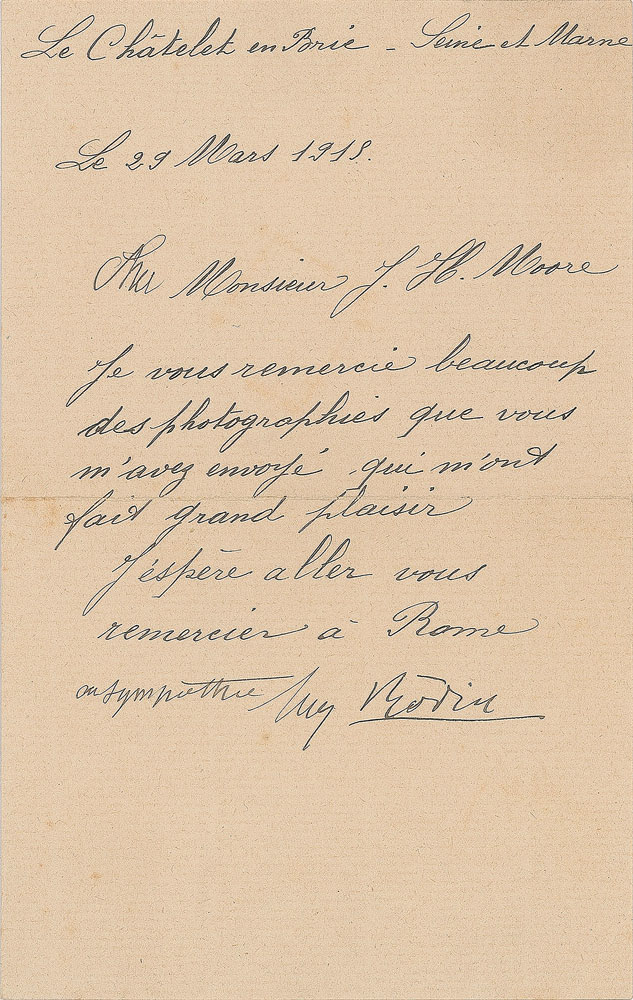 Le Châtelet en Brie - Seine et Marne
Le 29 Mars 1915.
Cher Monsieur J. H. Moore
Je vous remercie beaucoup
des photographies que vous
m'avez envoyé qui m'ont
fait grand plaisir
J'éspère aller vous
remercier à Rome
sympathie Aug Rodin